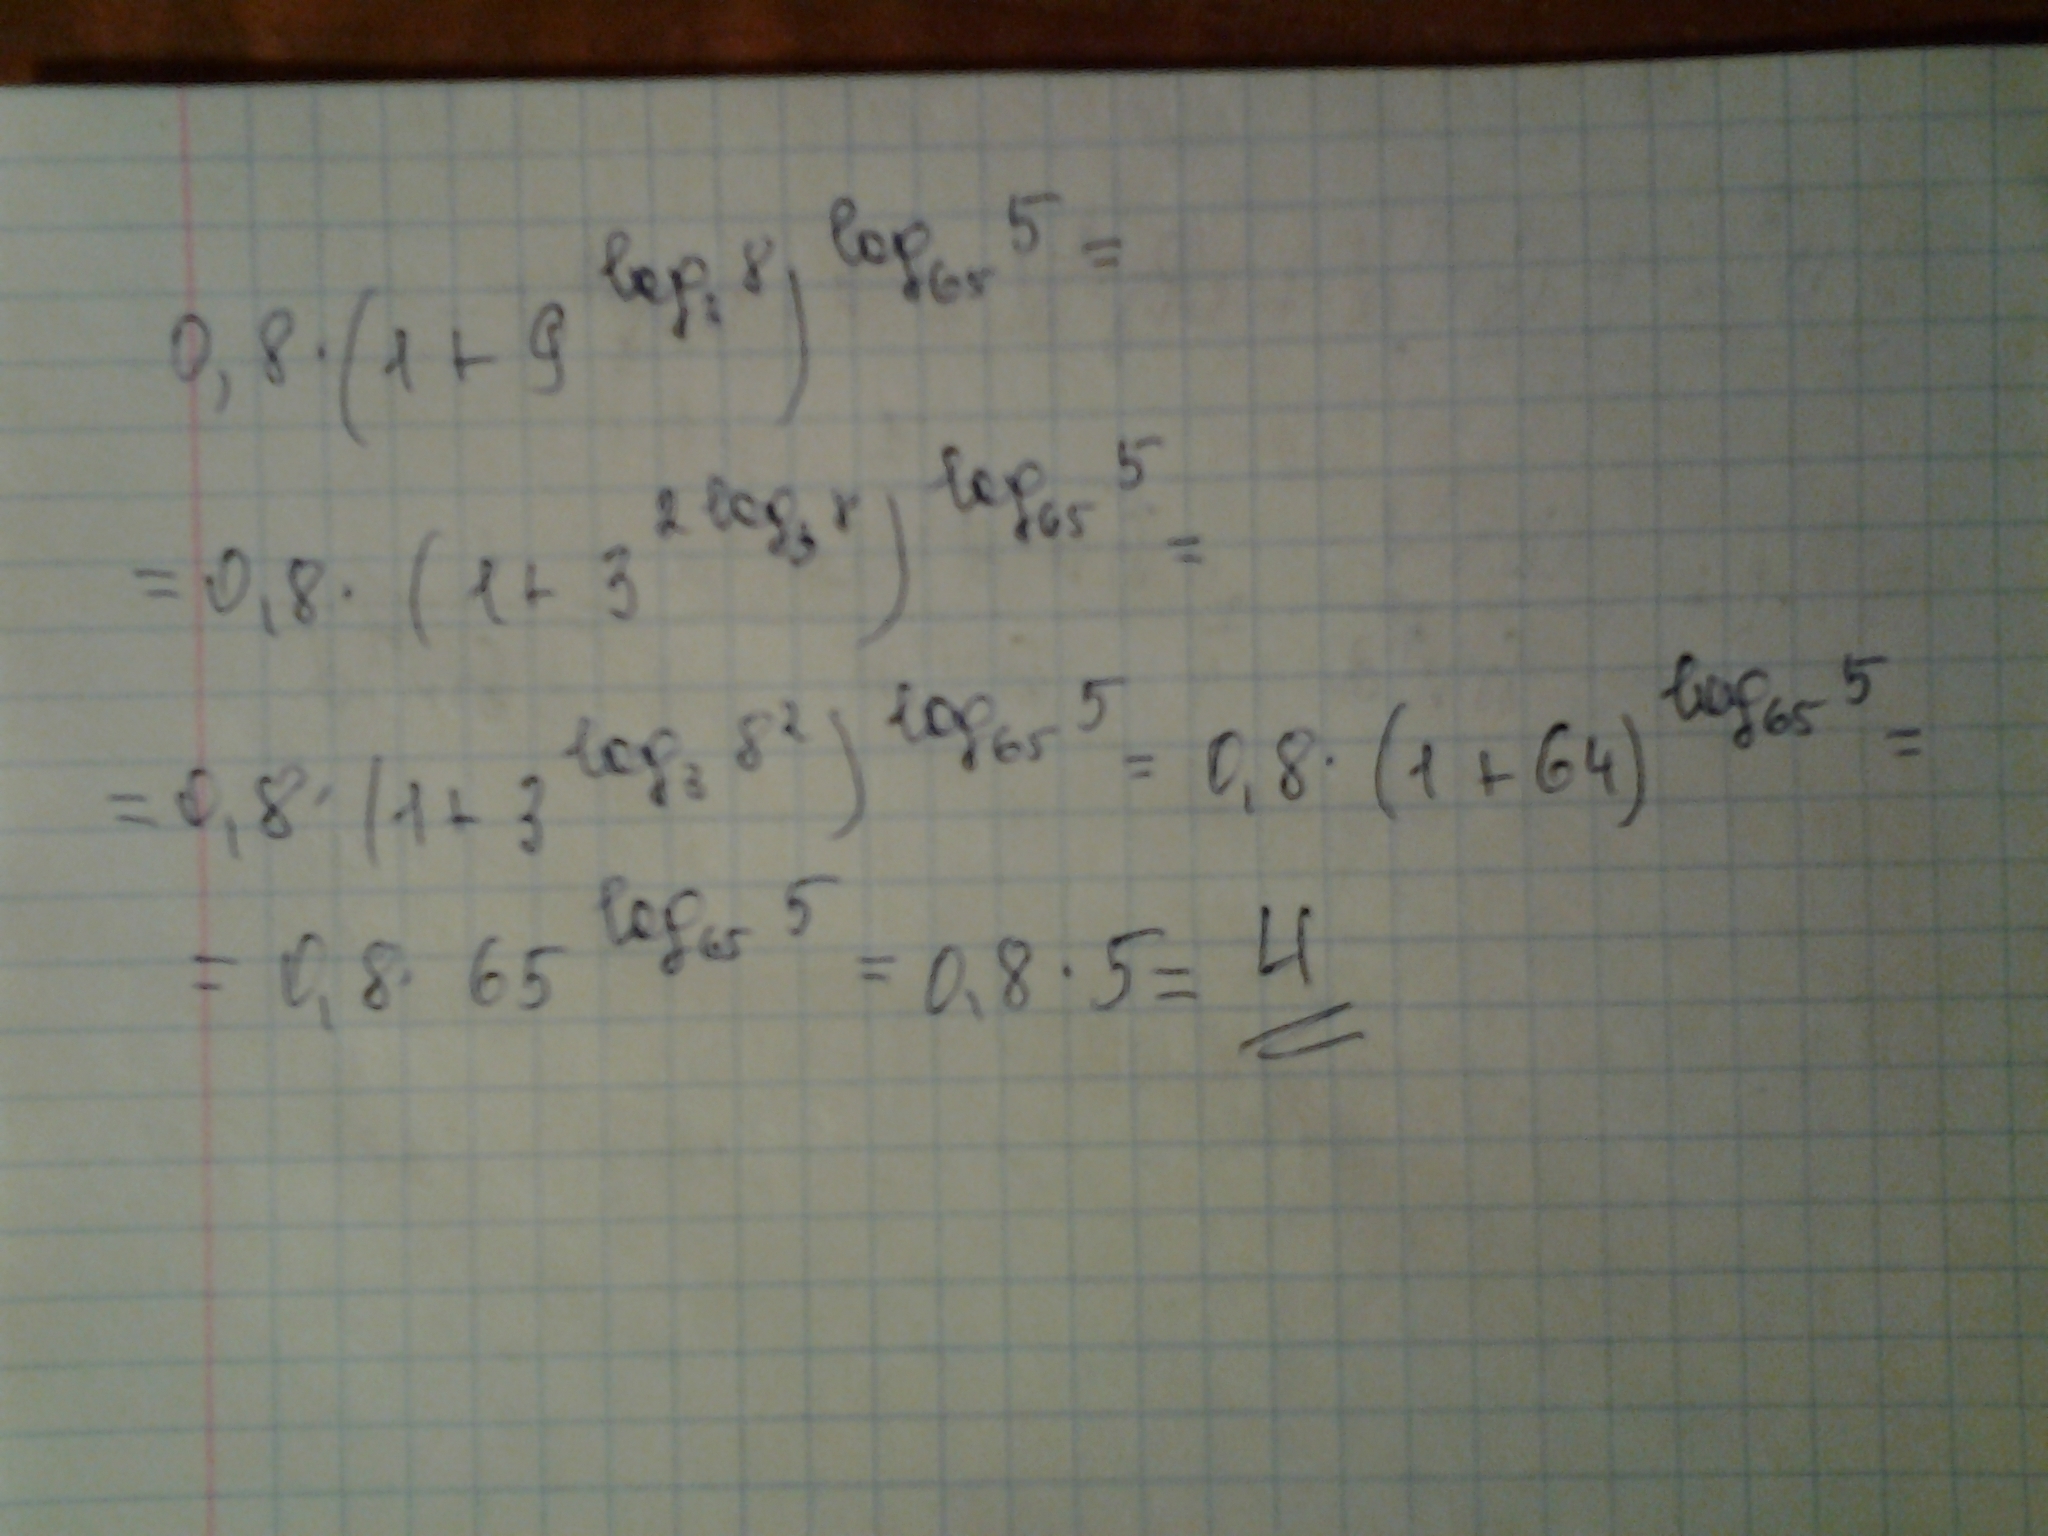 0,8·(1+9^{log_3 8})^{log_{65} 5}=
=0,8·(1+3^{2log_3 8})^{log_{65} 5}=
=0,8·(1+3^{log_3 8^2})^{log_{65} 5}=0,8·(1+64)^{log_{65} 5}=
=0,8·65^{log_{65} 5}=0,8·5=4